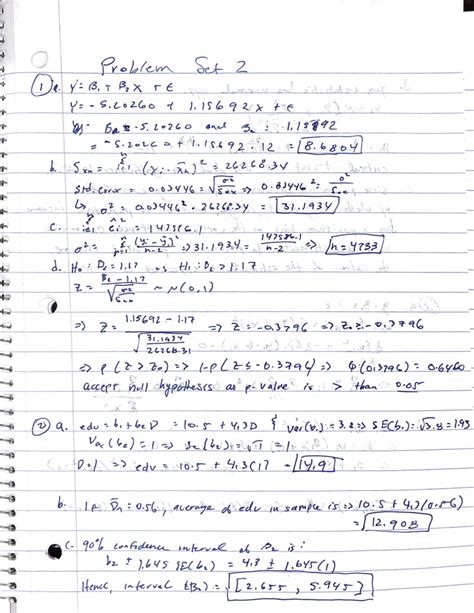 Problem Set 2
① a. Y = B₁ + B₂ X + E
Y = -5.20260 + 1.15692 X + E
B₁ = -5.20260 and B₂ = 1.15692
= -5.20260 + 1.15692 · 12 = 8.6804
b. Sxx = (xi - x̄n)² = 26268.34
std. error = 0.03446 = √(σ²/Sxx) => 0.03446² = σ²/Sxx
↳ σ² = 0.03446² · 26268.34 = 31.1934
c. Σ êi² = 147586.1
σ² = Σ (yi - ŷi)²/n-2 => 31.1934 = 147586.1/n-2 => n = 4733
d. H₀: B₂ = 1.17 vs. H₁: B₂ > 1.17
Z = B₂ - 1.17/√(σ²/Sxx) ~ N(0,1)
=> Z = 1.15692 - 1.17/√(31.1934/26268.31) => Z = -0.3796 => Z₀ = -0.3796
=> P(Z > Z₀) => 1 - P(Z ≤ -0.3796) => Φ(0.3796) = 0.6460
accept null hypothesis as p-value is > than 0.05
② a. edu = b₁ + b₂ D = 10.5 + 4.3D var(b₁) = 3.8 => SE(b₁) = √3.8 = 1.93
Var(b₂) = 1 => se(b₂) = √1 = 1
D=1 => edu = 10.5 + 4.3(1) = 14.9
b. If D̄n = 0.56, average of edu in sample is => 10.5 + 4.3(0.56)
= 12.908
c. 90% confidence interval of B₂ is:
b₂ ± 1.645 SE(b₂) = 4.3 ± 1.645(1)
Hence, interval (B₂) = [2.655, 5.945]